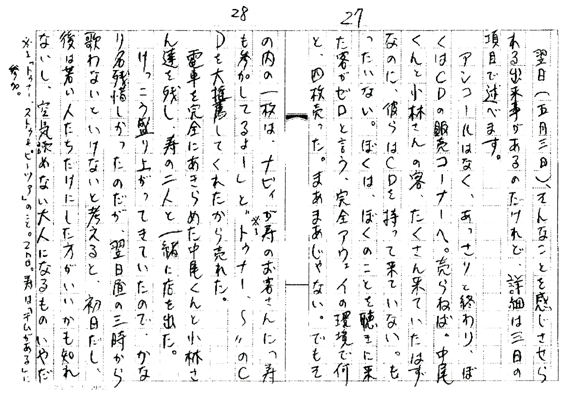 27
翌日(五月三日)、そんなことを感じさせら
れる出来事があるのだけれど、詳細は三日の
項目で述べます。
アンコールはなく、あっさりと終わり、ぼ
くはCDの販売コーナーへ。売らねば。中尾
くんと小林さんの客、たくさん来ていたはず
なのに、彼らはCDを持って来ていない。も
ったいない。ぼくは、ぼくのことを聴きに来
た客がゼロと言う、完全アウェイの環境で何
と、四枚売った。まあまあじゃない。でもそ
28
の内の一枚は、ナビィが寿のお客さんに「寿
も参加してるよー」と『トゥナー、〜』のC
Dを大推薦してくれたから売れた。
電車を完全にあきらめた中尾くんと小林さ
ん達を残し、寿の二人と一緒に店を出た。
けっこう盛り上がってきていたので、かな
り名残惜しかったのだが、翌日昼の三時から
歌わないといけないと考えると、初日だし、
後は若い人たちだけにした方がいいかも知れ
ないし、空気読めない大人になるものいやだ